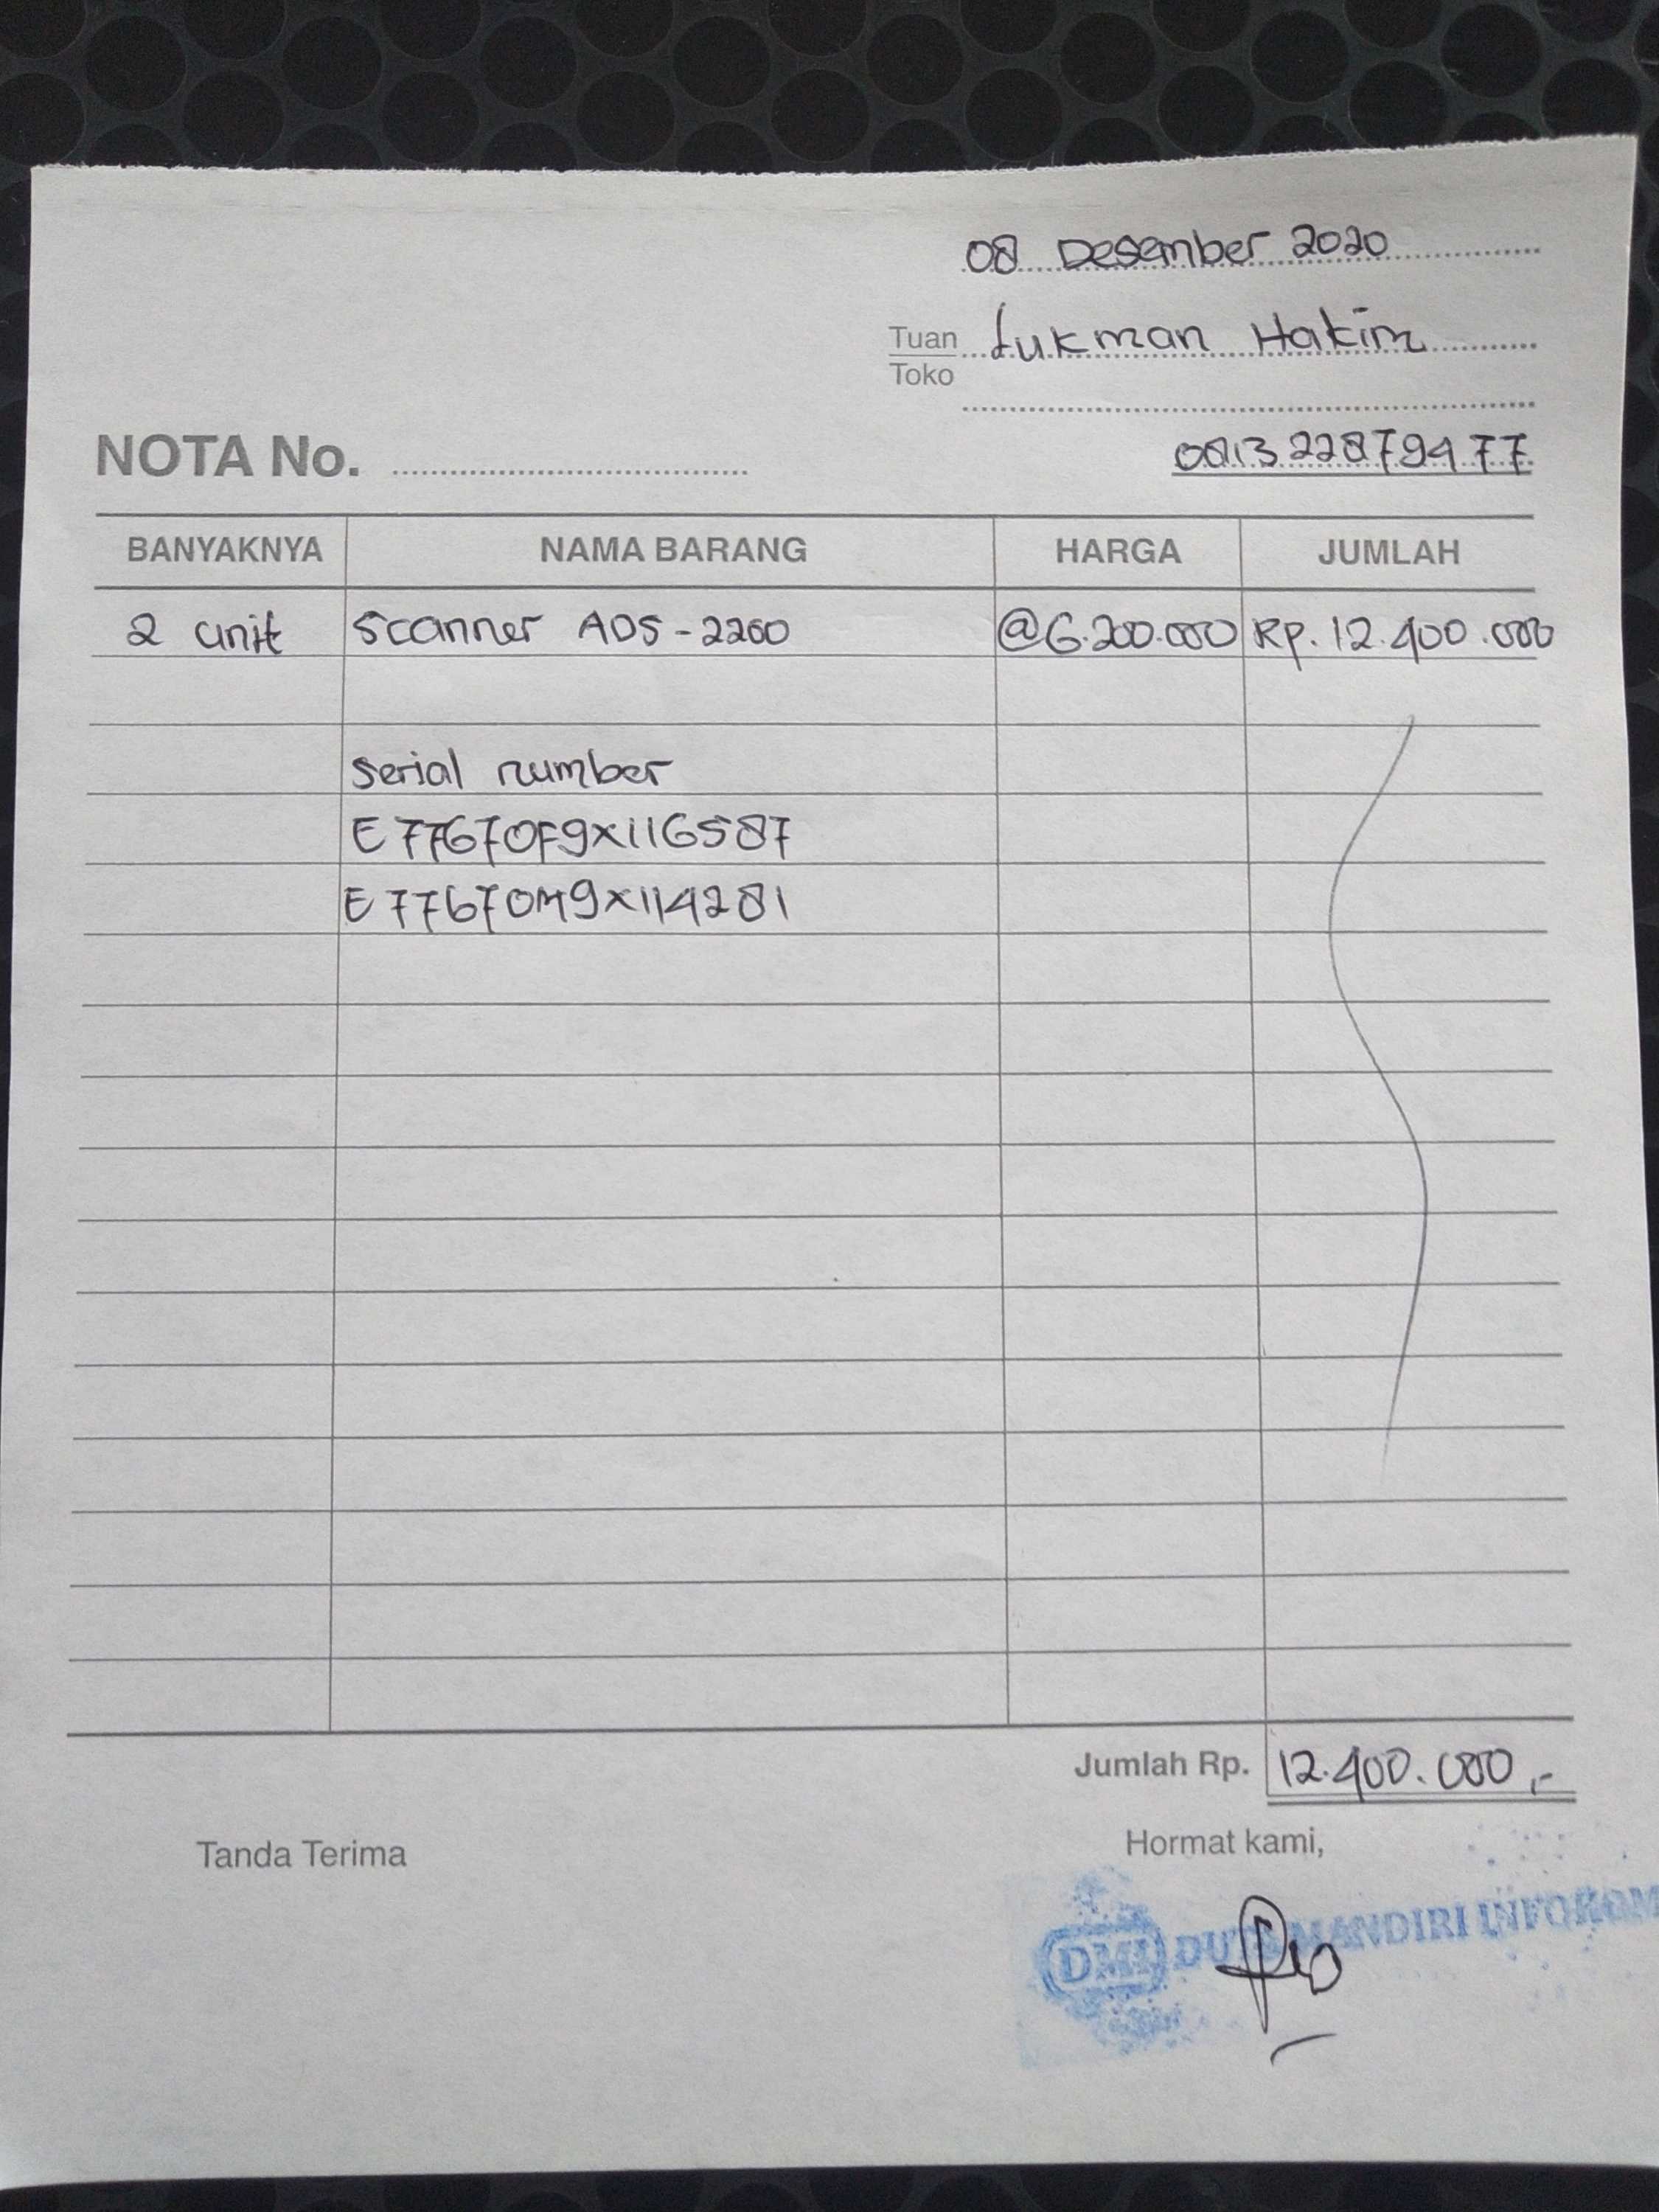 08 Desember 2020
Tuan Lukman Hakim
Toko
NOTA No. 081322879477
BANYAKNYA NAMA BARANG HARGA JUMLAH
2 unit Scanner ADS-2200 @6.200.000 Rp. 12.400.000
Serial number
E77670F9X116587
E77670M9X114281
Jumlah Rp. 12.400.000,-
Tanda Terima Hormat kami,
DMI DUTA MANDIRI INFOKOM